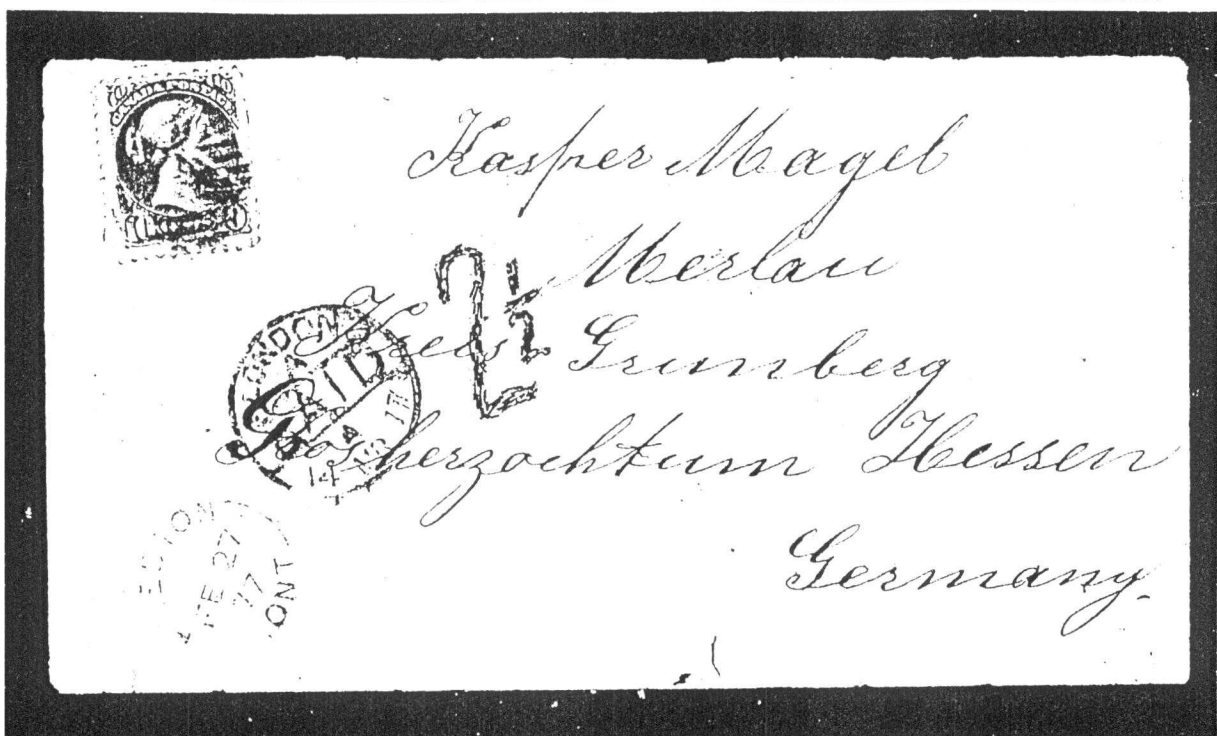 CANADA POSTAGE
10 CENTS 10
Kasper Magel
Merlau
Kreis Grunberg
Grosherzochtum Hessen
Germany.
LONDON
PAID
14
2½
FE 27
77
ONT